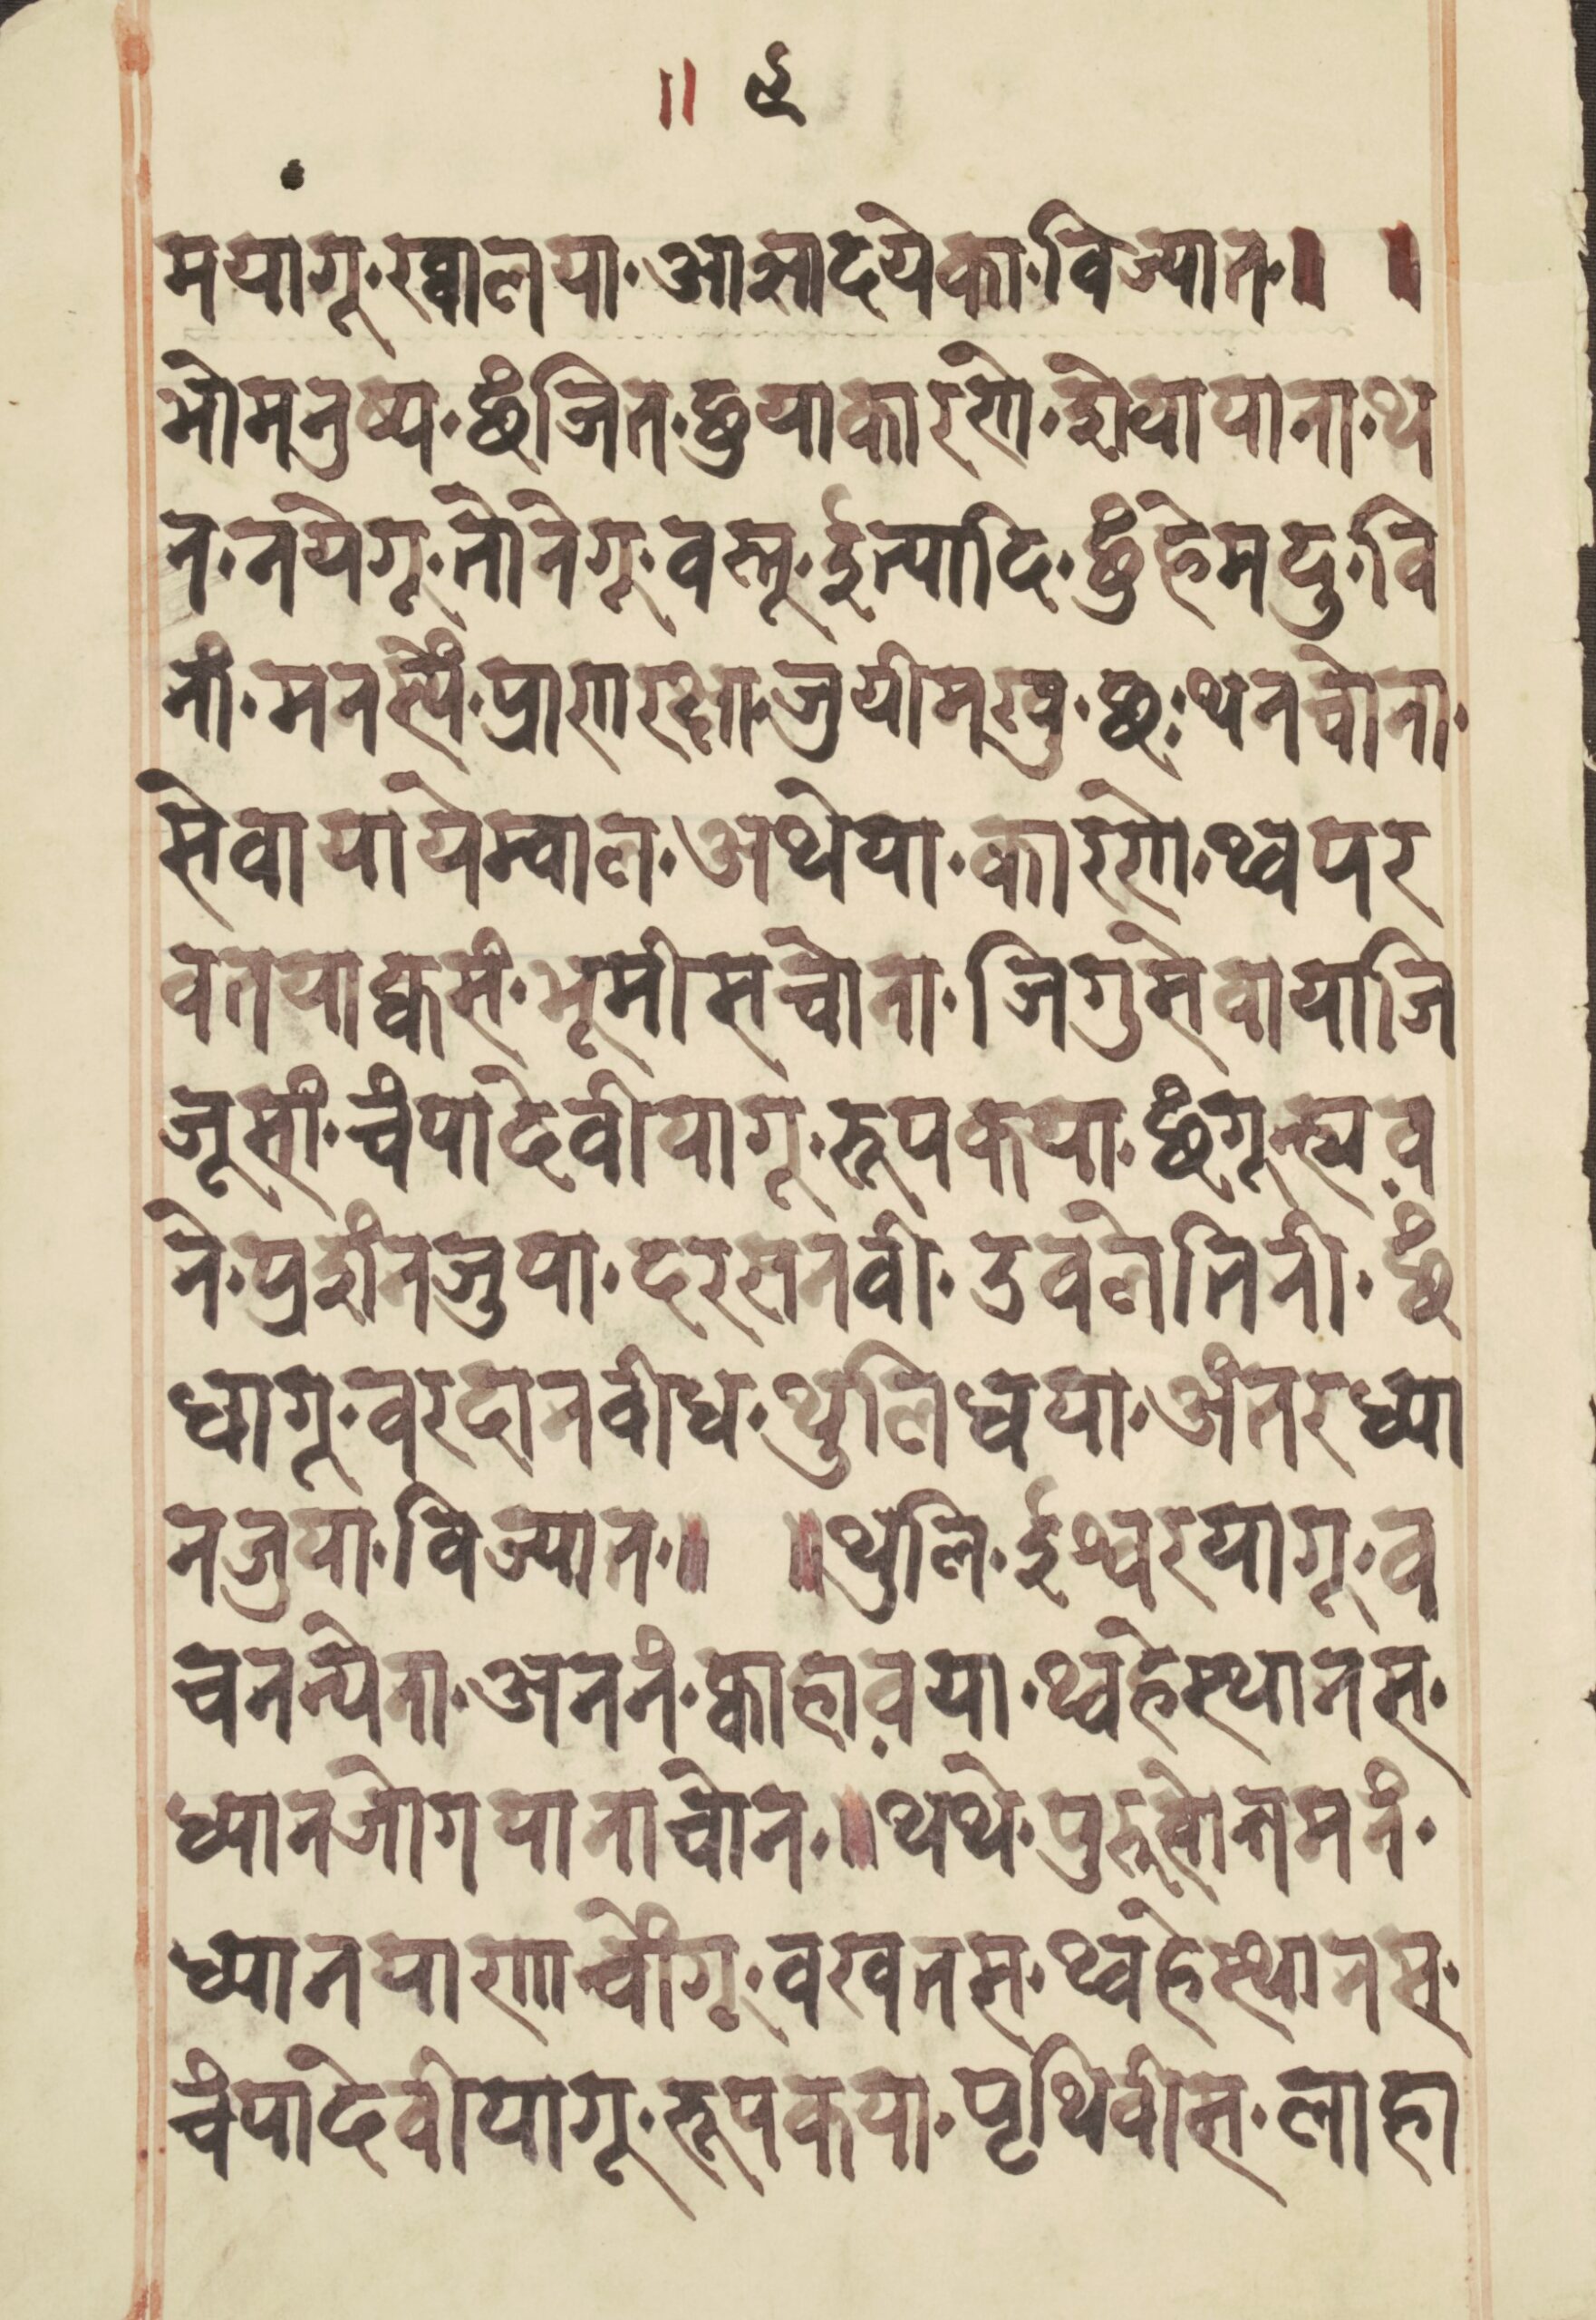 ॥ ६
मयागू·ख्वालया·आसादयेका·विज्यात·॥ ॥
भोमनुष्य·छंजित·छुयाकारणे·शेवायाना·थ
न·नयेगू·तोनेगू·वस्तू·ईत्यादि·छुंहेमदु·वि
नी·मनल्यें·प्राणरक्षा·जुयीमखु·छ·थनच्वोना·
सेवायायेम्वाल·अथेया·कारणे·थ्वपर
वतयाक्वसं·भूमीसच्वोना·जिगुसेवायाजि
जूसी·चंपादेवीयागू·रूपकया·छंगूल्ह्यव
ने·प्रशंनजुया·दरसनवी·उवलेतिनी·छं
धागू·वरदानवीध·थुलिध्वया·अंतरध्या
नजुया·विज्यात·॥ ॥थुलि·ईश्वरयागू·व
चनन्येना·अननं·क्वाहावया·थ्वहेस्थानस·
ध्यानजोगयानाच्वोन·॥थथे·पुरुषोत्तमनं·
ध्यानयाणाच्वोंगू·वखतस·थ्वहेस्थानस·
चंपादेवीयागू·रूपकया·पृथिवीस·लाहा